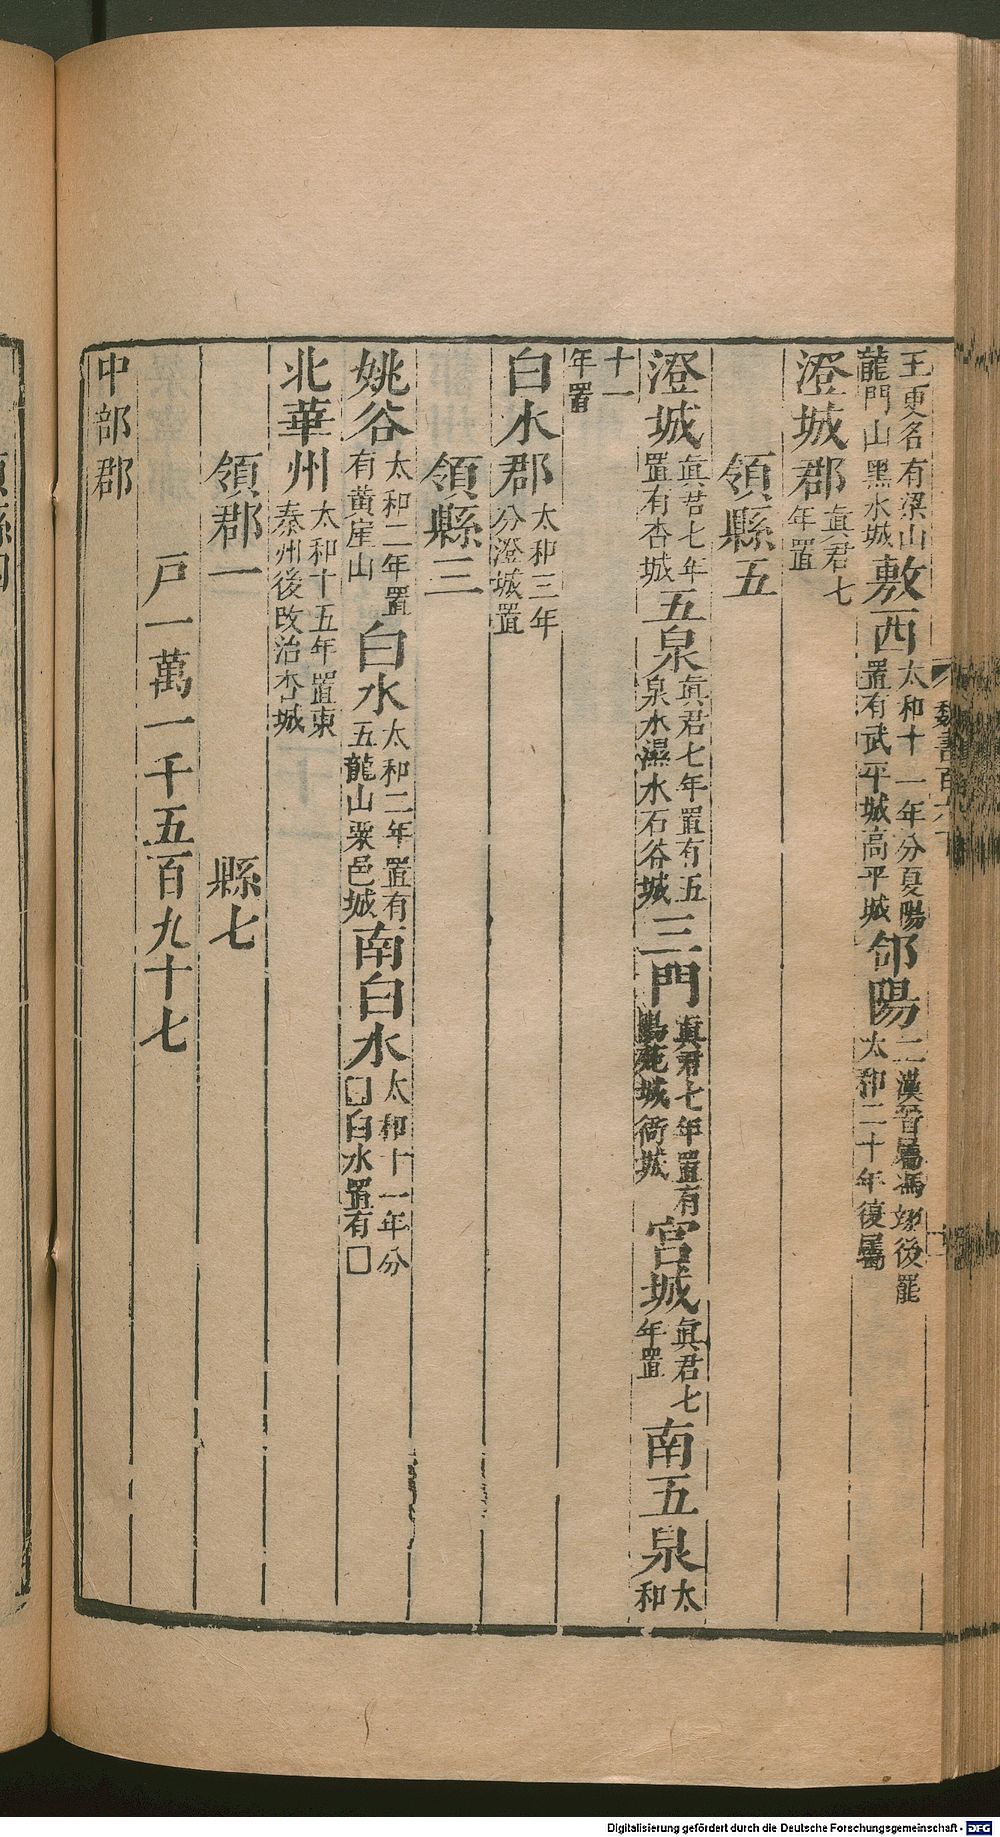 王更名有梁山龍門山黑水城敷西太和十一年分夏陽置有武平城高平城郃陽二漢晉屬馮翊後罷太和二十年復屬
澄城郡眞君七年置
領縣五
澄城眞君七年置有杏城五泉眞君七年置有五泉水濕水石谷城三門眞君七年置有城衙城宮城眞君七年置南五泉太和
十一年置
白水郡太和三年分澄城置
領縣三
姚谷太和二年置有黄崖山白水太和二年置有五龍山粟邑城南白水太和十一年分□白水置有□
北華州太和十五年置東秦州後改治杏城
領郡一 縣七
戸一萬一千五百九十七
中部郡
魏書百六下
Digitalisierung gefördert durch die Deutsche Forschungsgemeinschaft - DFG